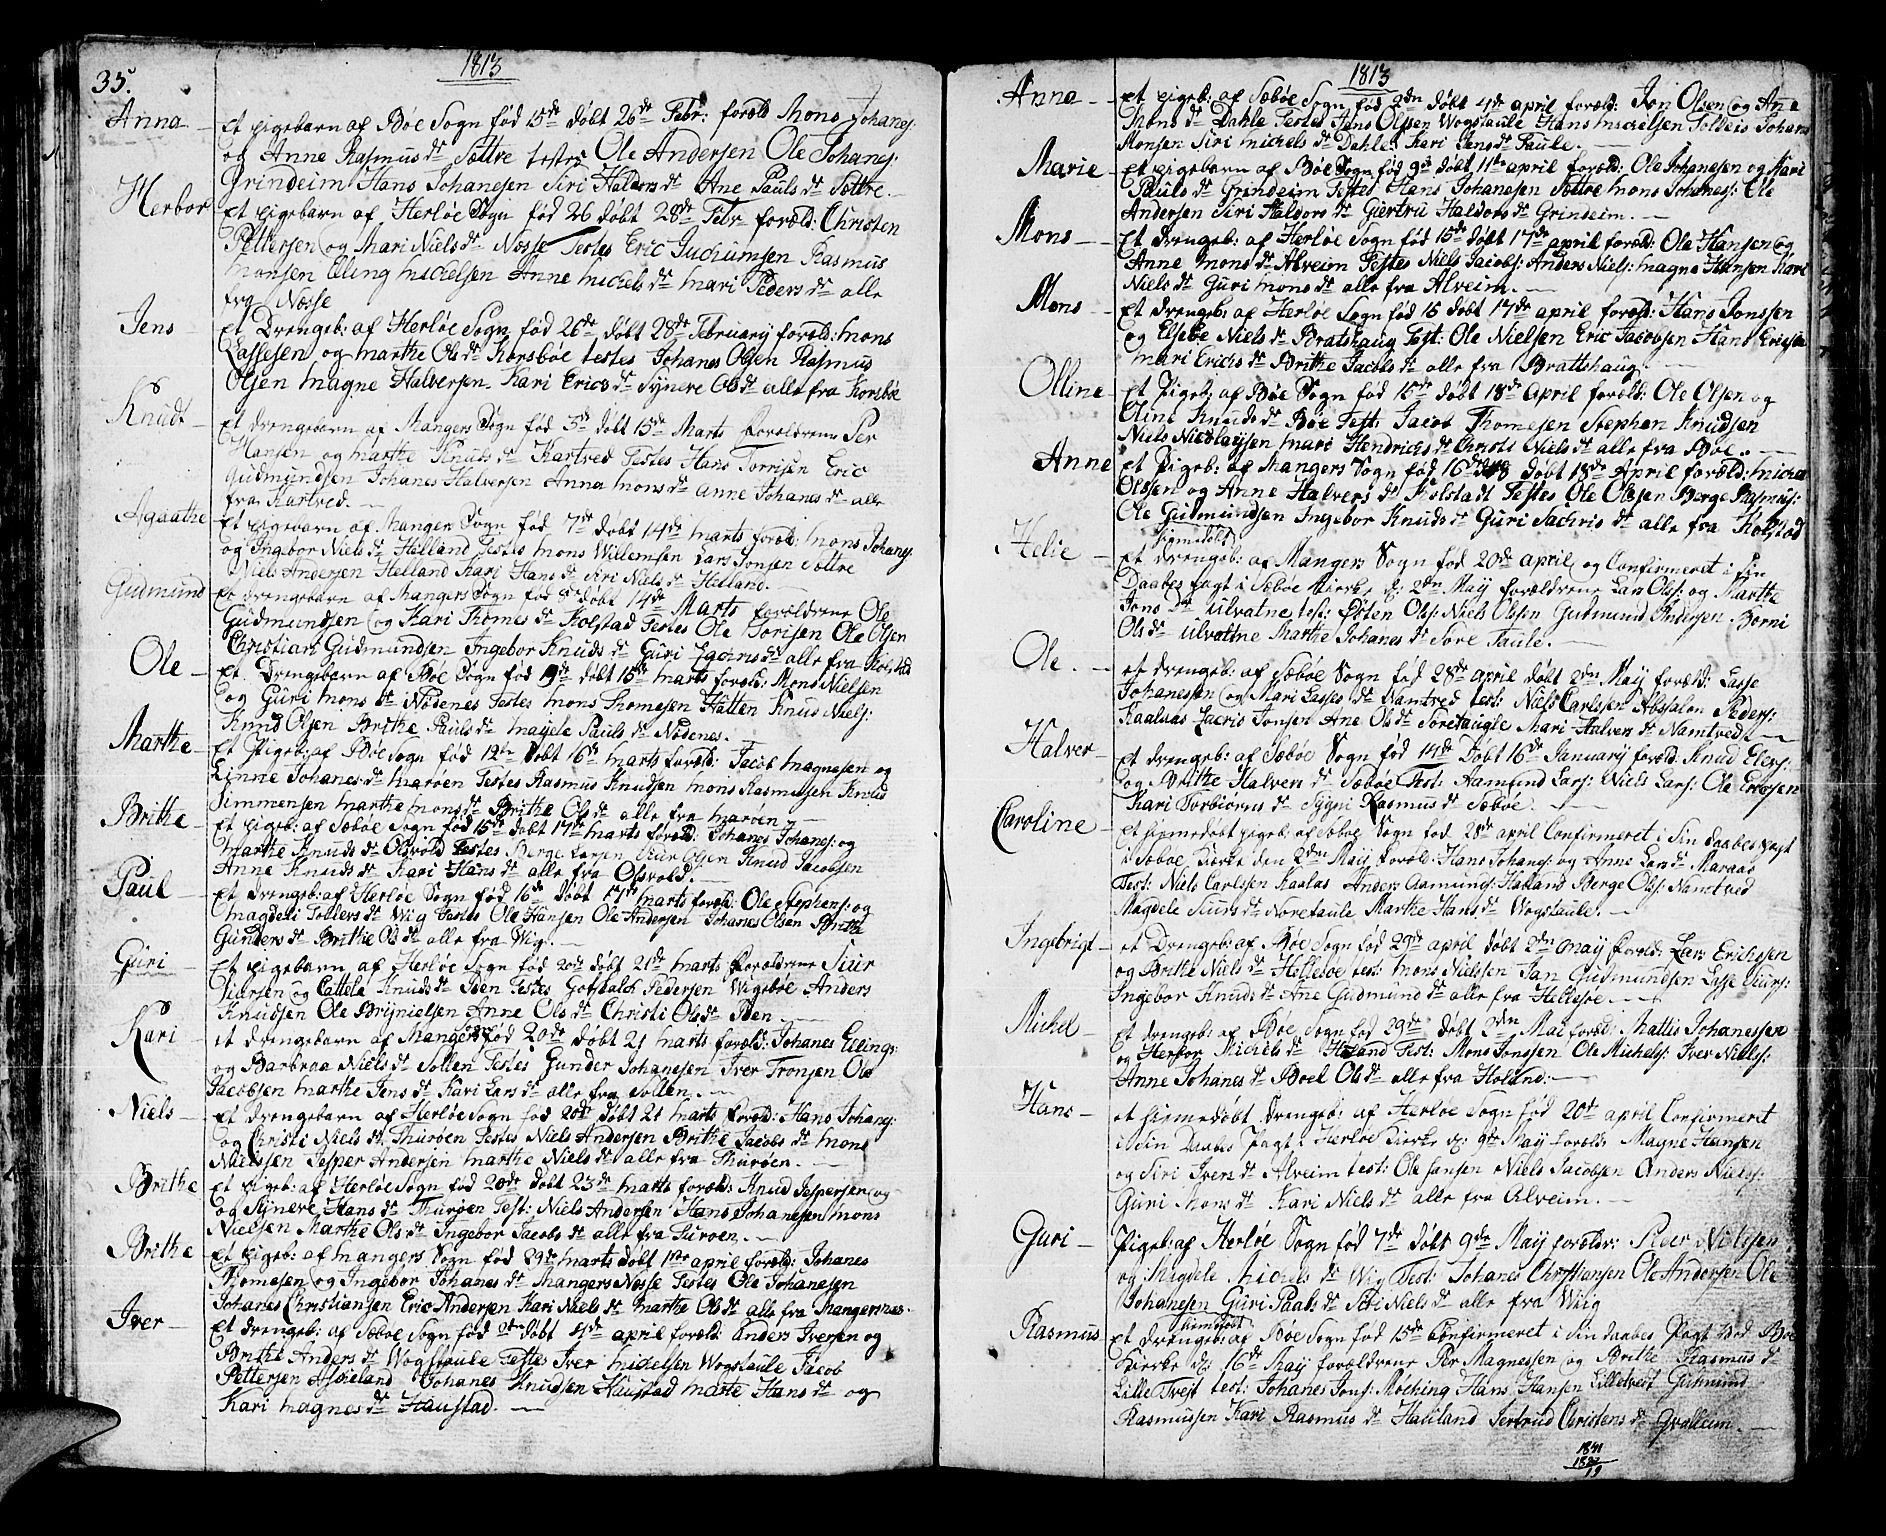 35.
1813
Anna – Et pigebarn af Bøe Sogn fød 15de døbt 26de Febr: foræld Mons Johanes:
og Anne Rasmus dr Søttre testes Ole Andersen Ole Johanes:
Grindeim Hans Johanesen Siri Haldors dr Ane Pauls dr Søttre. –
Herbor Et pigebarn af Herløe Sogn fød 26 døbt 28de Febr foræld: Christen
Pettersen og Mari Niels dr Nøsse Testes Eric Gudmunsen Rasmus
Monsen Elling Michelsen Anne Michels dr Mari Peders dr alle
fra Nøsse
Jens – Et Drengeb: af Herløe Sogn fød 26de døbt 28de February foræld: Mons
Lassesen og Marthe Ols dr Korsbøe testes Johanes Olsen Rasmus
Olsen Magne Halversen Kari Erics dr Synere Ols dr alle fra Korsbøe
Knudt – Et drengebarn af Mangers Sogn fød 5te døbt 15de Marts forældrene Per
Hansen og Marthe Knuds dr Kartved Testes Hans Torrisen Eric
Gudmundsen Johanes Halversen Anna Mons dr Anne Johanes dr alle
fra Kartved. –
Agaathe Et pigebarn af Mangers Sogn fød 7de døbt 14de Marts foræld: Mons Johanes:
og Ingebor Niels dr Helland Testes Mons Willemsen Lars Jonsen Søttre
Niels Andersen Helland Kari Hans dr Siri Niels dr Helland. –
Gudmund Et drengebarn af Mangers Sogn fød 8de døbt 14de Marts forældrene Ole
Gudmundsen og Kari Thomes dr Kolstad Testes Ole Torisen Ole Olsen
Christian Gudmundsen Ingebor Knuds dr Guri dr alle fra Kolstad
Ole – Et Drengebarn af Bøe Sogn fød 9de døbt 15de Marts foræld: Mons Nielsen
og Guri Mons dr Nødenes Testes Mons Thomesen Hatten Knud Niels:
Knud Olsen Brithe Pauls dr Magele Pauls dr Nødenes. –
Marthe – Et Pigeb: af Bøe Sogn fød 12te døbt 16de Marts foræld: Jacob Magnesen og
Linne Johanes dr Marøen Testes Rasmus Knudsen Mons Rasmusen Knud
Simmensen Marthe Mons dr Brithe Ols dr alle fra Marøen –
Brithe – Et pigeb: af Sæbøe Sogn fød 15de døbt 17de Marts foræld: Johanes Johanes: og
Marthe Knuds dr Olsvold testes Berge Larsen Siur Olsen Knud Jacobsen
Anne Knuds dr Kari Hans dr alle fra Olsvold. –
Paul – Et Drengeb: af Herløe Sogn fød 16de døbt 17de Marts foræld: Ole Stephens: og
Magdeli Tollers dr Wiig Testes Ole Hansen Ole Andersen Johanes Olsen Brithe
Gunders dr Brithe Ols dr alle fra Wig. –
Guri – Et pigebarn af Herløe Sogn fød 20de døbt 21de Marts forældrene Siur
Siursen og Cattele Knuds dr Iden Testes Gotskalck Pedersen Wigebøe Anders
Knudsen Ole Brynielsen Anne Ols dr Christi Ols dr Iden. –
Kari – et drengebarn af Mangers fød 20de døbt 21 Marts foræld: Johanes Ellings:
og Barbraa Niels dr Sollen Testes Gunder Johanesen Iver Tronsen Ole
Jacobsen Marthe Jens dr Kari Lars dr alle fra Sollen. –
Niels – Et Drengebarn af Herløe Sogn fød 20de døbt 21 Marts foræld: Hans Johanes:
og Christi Niels dr Thurøen Testes Niels Andersen Brithe Jacobs dr Mons
Nielssen Jesper Andersen Marthe Niels dr alle fra Thurøen. –
Brithe Et pigeb: af Herløe Sogn fød 20de døbt 23de Marts foræld: Knud Jespersen og
og Synere Hans dr Thurøen Test: Niels Andersen Hans Johanesen Mons
Nielsen Marthe Ols dr Ingebor Jacobs dr alle fra Turøen. –
Brithe – Et pigeb: af Mangers Sogn fød 29de Marts døbt 1ste april foræld: Johanes
Thomesen og Ingebor Johanes dr Mangers Nøsse Testes Ole Johanesen
Johanes Christiansen Eric Andersen Kari Niels dr Marthe Ols dr alle fra Mangersnøs.
Iver – Et drengeb: af Sæbøe Sogn fød 2den døbt 4de april foræld: Anders Iversen og
Brithe Anders dr Wogstaule Testes Iver Michelsen Wogstaule Jacob
Pettersen Høieland Johanes Knudsen Haustad Marte Hans dr og
Kari Magnes dr Haustad. –
1813
Anna – Et pigeb: af Sæbøe Sogn fød 2den døbt 4de april foræld: Jon Olsen og Ane
Mons dr Dahle Testes Hans Olsen Wogstaule Hans Michelsen Johan
Monsen Siri Michels dr Dahle Kari Jens dr Taule. –
Marie – Et pigebarn af Bøe Sogn fød 9de døbt 11te april foræld: Ole Johanesen og Kari
Pauls dr Grindeim Testes Hans Johanesen Søttre Mons Johanes: Ole
Andersen Siri Haldors dr Giertru Haldors dr Grindeim. –
Mons – Et Drengeb: af Herløe Sogn fød 15de døbt 17de april foræld: Ole Hansen og
Anne Mons dr Alveim Testes Niels Jacobs: Anders Niels: Magne Hansen Kari
Niels dr Guri Mons dr alle fra Alveim. –
Mons – Et drengeb: af Herløe Sogn fød 15 døbt 17de april foræld: Hans Jonssen
og Elsebe Niels dr Bratshaug Test: Ole Nielsen Eric Jacobsen Hans Ericsen
Mari Erichs dr Brithe Jacobs dr alle fra Brattshaug. –
Olline – Et Pigeb: af Bøe Sogn fød 15de døbt 18de April foræld: Ole Olsen og
Oline Knuds dr Bøe Test: Jacob Thomesen Stephen Knudsen
Niels Nicolaysen Mari Hendrichs dr Christi Niels dr alle fra Bøe. –
Anne Et Pigeb: af Mangers Sogn fød 16de døbt 18de April foræld: Michel
Olssen og Anne Halvers dr Kolstadt Testes Ole Olsen Berge Rasmus:
Ole Gudmundsen Ingebor Knuds dr Guri Sachris dr alle fra Kolstad
Helie – Et hiemedøbt drengeb: af Mangers Sogn fød 20de april og Confirmeret i sin
Daabes Pagt i Sæbøe Kierke d: 2den May forældrene Lars Ols: og Marthe
Jens dr Ulvatne test: Østen Ols: Niels Olsen Gudmund Andersen Borni
Ols dr Ulvattne Marthe Johanes dr Søre Taule. –
Ole. – et drengeb: af Sæbøe Sogn fød 28de april døbt 2den May foræld: Lasse
Johanessen og Mari Lasses dr Namtved test: Niels Carlssen Abssalon Peders:
Kaalaas Zacris Jonsen Ane Ols dr Søretaugle Mari Halver dr Namtved. –
Halver – Et drengeb: af Sæbøe Sogn fød 14de Døbt 16de January foræld: Knud Elers:
og Brithe Halvers dr Sæbøe Test: Aamund Lars: Niels Lars: Ole Ericsen
Kari Torbiørns dr Sygni Rasmus dr Sæbøe. –
Caroline – Et hiemedøbt pigeb: af Sæbøe Sogn fød 28de april Confirmeret i Sin daabes pagt
i Sæbøe Kierke den 2den May foræld: Hans Johanes: og Anne Lars dr Maraas
Test: Niels Carlssen Kaalaas Anders Aamunds: Halland Berge Ols: Namtved
Magdele Siurs dr Nøretaule Marthe Hans dr Wogstaule. –
Ingebrigt – et Drengeb: af Bøe Sogn fød 29de april døbt 2den May foræld: Lars Erichssen
og Brithe Niels dr Hellesøe test: Mons Nielssen Jan Gudmundsen Lasse Siurs:
Ingebor Knuds dr Ane Gudmund dr alle fra Hellesøe. –
Michel – Et drengeb: af Bøe Sogn fød 29de døbt 2den Mai foræld: Mattis Johanessen
og Herbor Michels dr Holand Test: Mons Jonssen Ole Michels: Iver Niels:
Anne Johanes dr Boel Ols dr alle fra Holand: –
Hans – et hiemedøbt Drengeb: af Herløe Sogn fød 20de april Confirmeret
i sin Daabes Pagt i Herløe Kierke d: 9de May foræld: Magne Hansen
og Siri Ivers dr Alveim test: Ole Hansen Niels Jacobsen Anders Niels:
Guri Mons dr Kari Niels dr alle fra Alveim. –
Guri – Pigeb: af Herløe Sogn fød 7de døbt 9de May forældr: Peder Nielsen
og Magdele Michels dr Wig Test: Johanes Christiansen Ole Andersen Ole
Johanesen Guri Paals dr Siri Niels dr alle fra Wiig
Rasmus Et hiemedøbt drengeb: af Bøe Sogn fød 15de Confirmeret i sin daabes Pagt ved Bøe
Kierke d: 16de May forældrene Per Magnessen og Brithe Rasmus dr
Lille Tvejt test: Johanes Jons: Møcking Hans Hansen Lilletvest Gudmund
Rasmussen Kari Rasmus dr Hauland Jertrud Christens dr Qvalleim. –
1841
1822
19